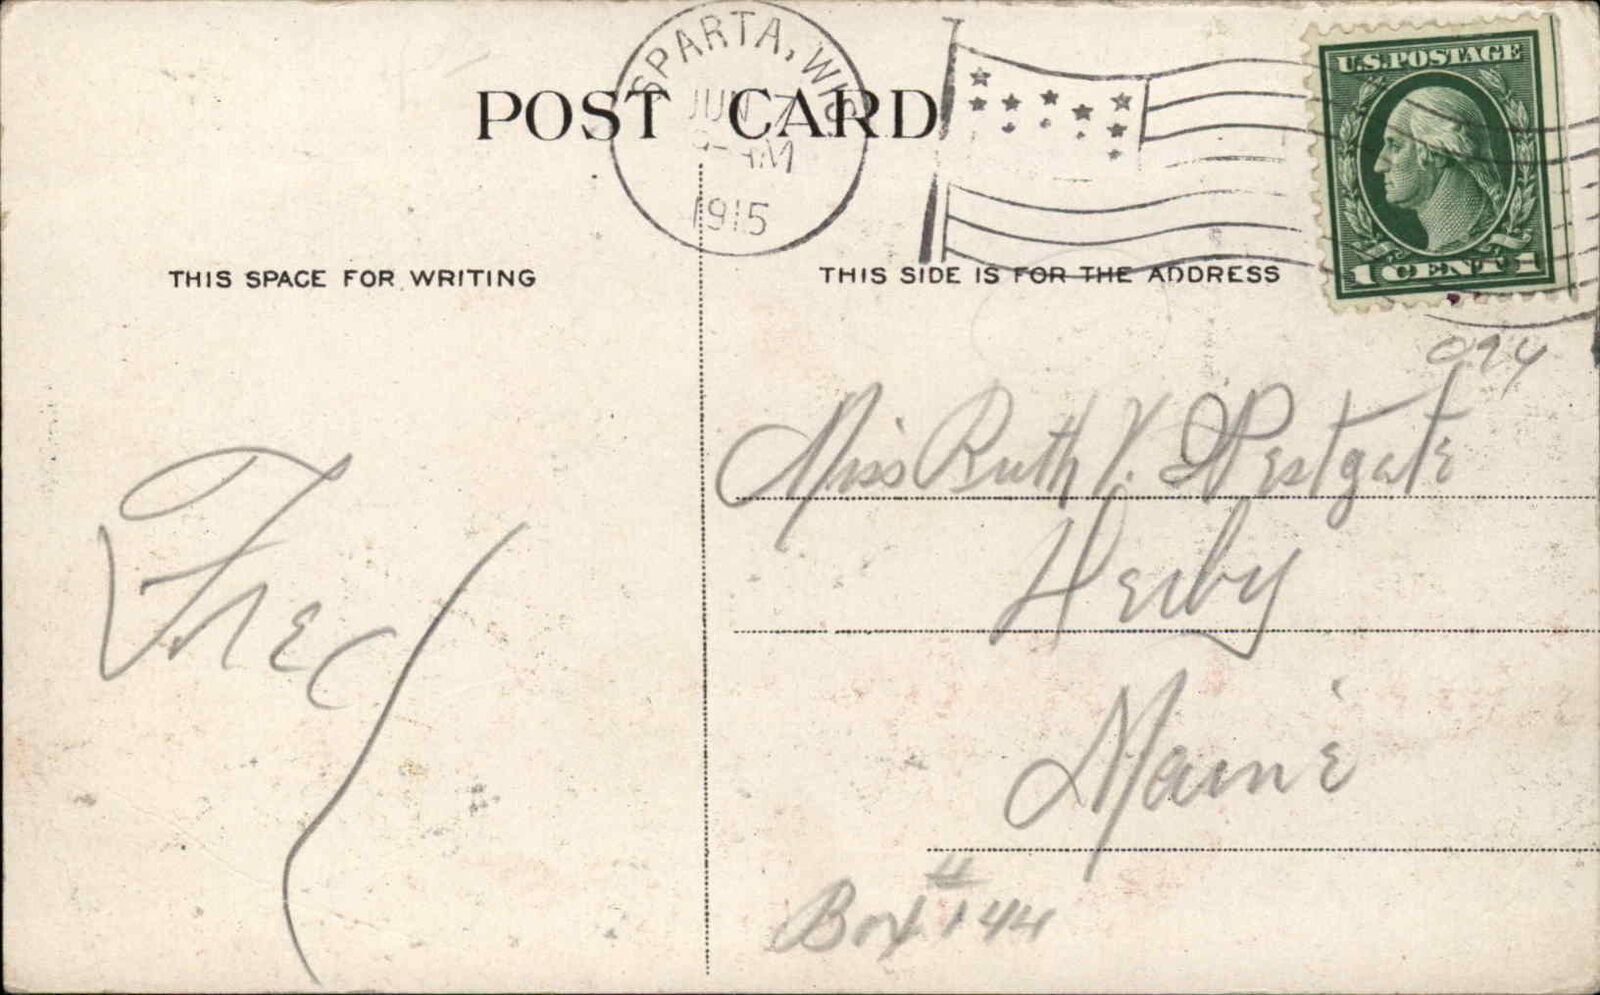 POST CARD
SPARTA, WIS
JUN 7
AM
1915
U.S. POSTAGE
1 CENT 1
THIS SPACE FOR WRITING
THIS SIDE IS FOR THE ADDRESS
Fred
Miss Ruth V. Westgate
Derby
Maine
Box # 144